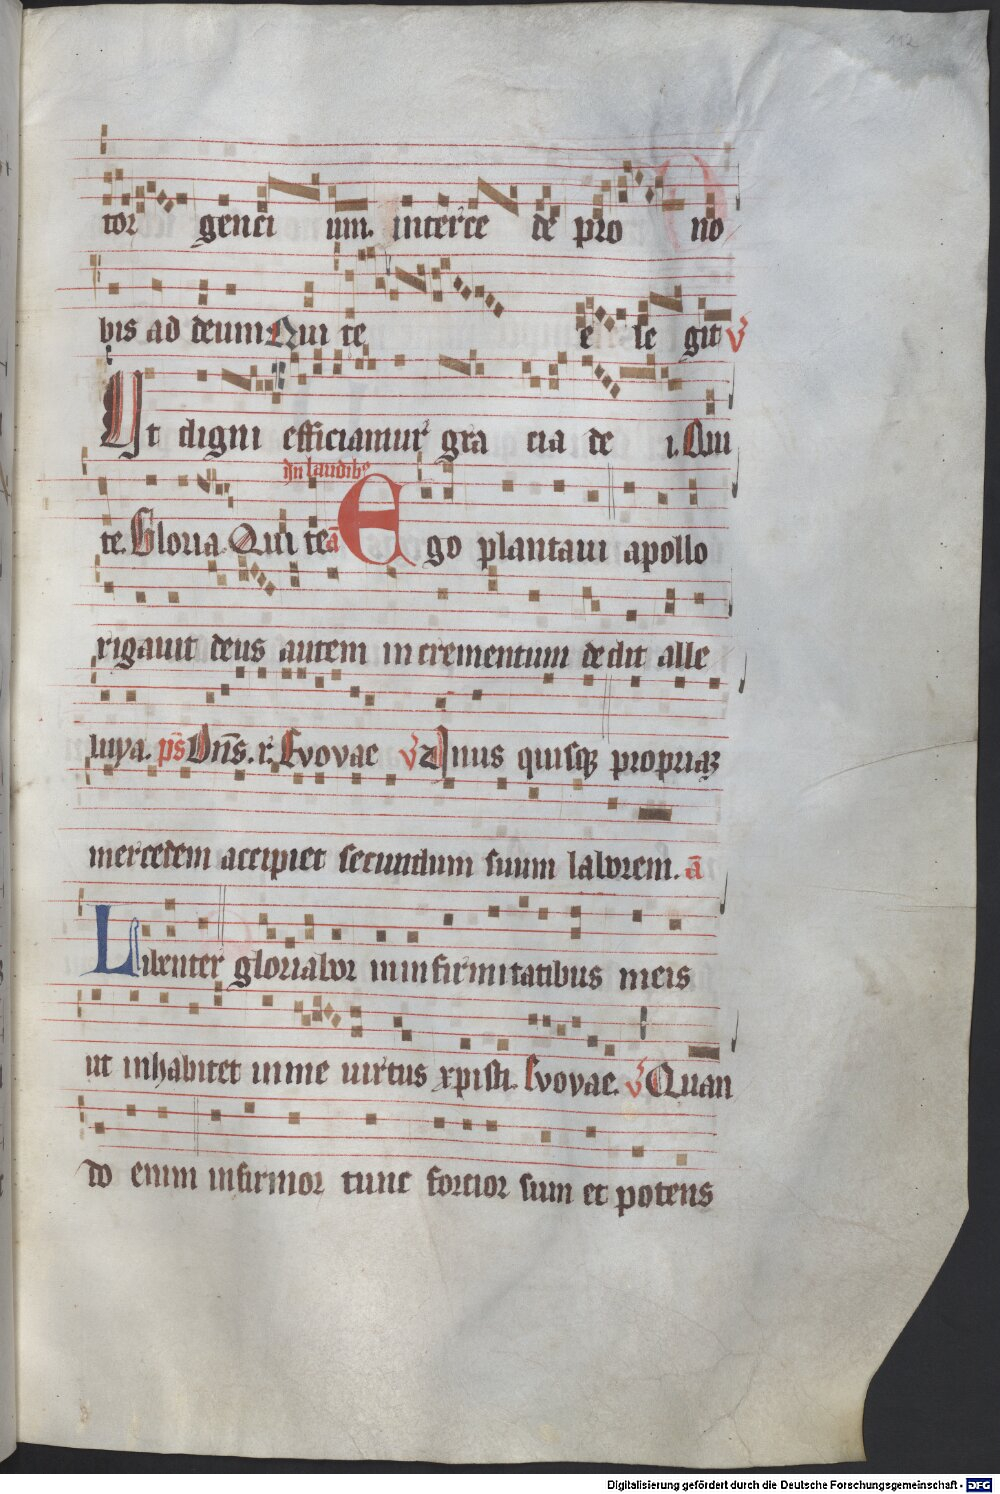 112
tor genci um. interce de pro no
bis ad deum Qui te e le git V̄
Ut digni efficiamur gra cia de i. Qui
In laudibꝰ
te. Gloria. Qui te ā Ego plantaui apollo
rigauit deus autem incrementum dedit alle
luya. ps̄ Dn̄s. r. Evovae V̄ Unus quisqꝫ propriaꝫ
mercedem accipiet secundum suum laborem. ā
Libenter gloriabor in infirmitatibus meis
ut inhabitet in me uirtus xpisti. Evovae. V̄ Quan
do enim infirmor tunc forcior sum et potens
Digitalisierung gefördert durch die Deutsche Forschungsgemeinschaft - DFG